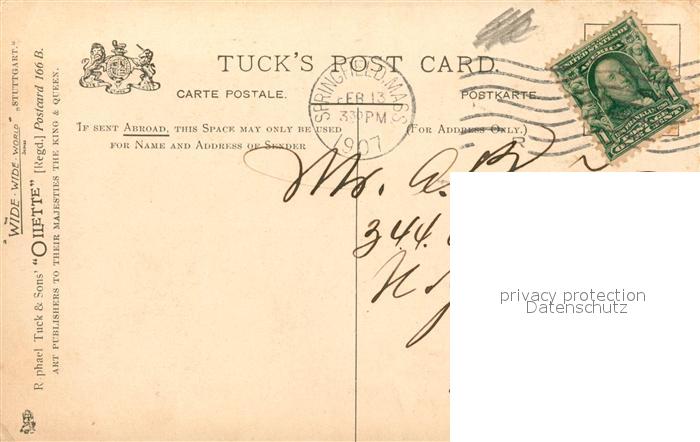 TUCK'S POST CARD.
CARTE POSTALE.
POSTKARTE.
SPRINGFIELD, MASS.
FEB 13
330 PM
1907
UNITED STATES OF AMERICA
If sent Abroad, this Space may only be used
for Name and Address of Sender
(For Address Only.)
R
Mr. A.
344
privacy protection
Datenschutz
"WIDE-WIDE-WORLD" Series „STUTTGART."
R phael Tuck & Sons' "OILETTE" [Regd.] Postcard 166 B.
ART PUBLISHERS TO THEIR MAJESTIES THE KING & QUEEN.